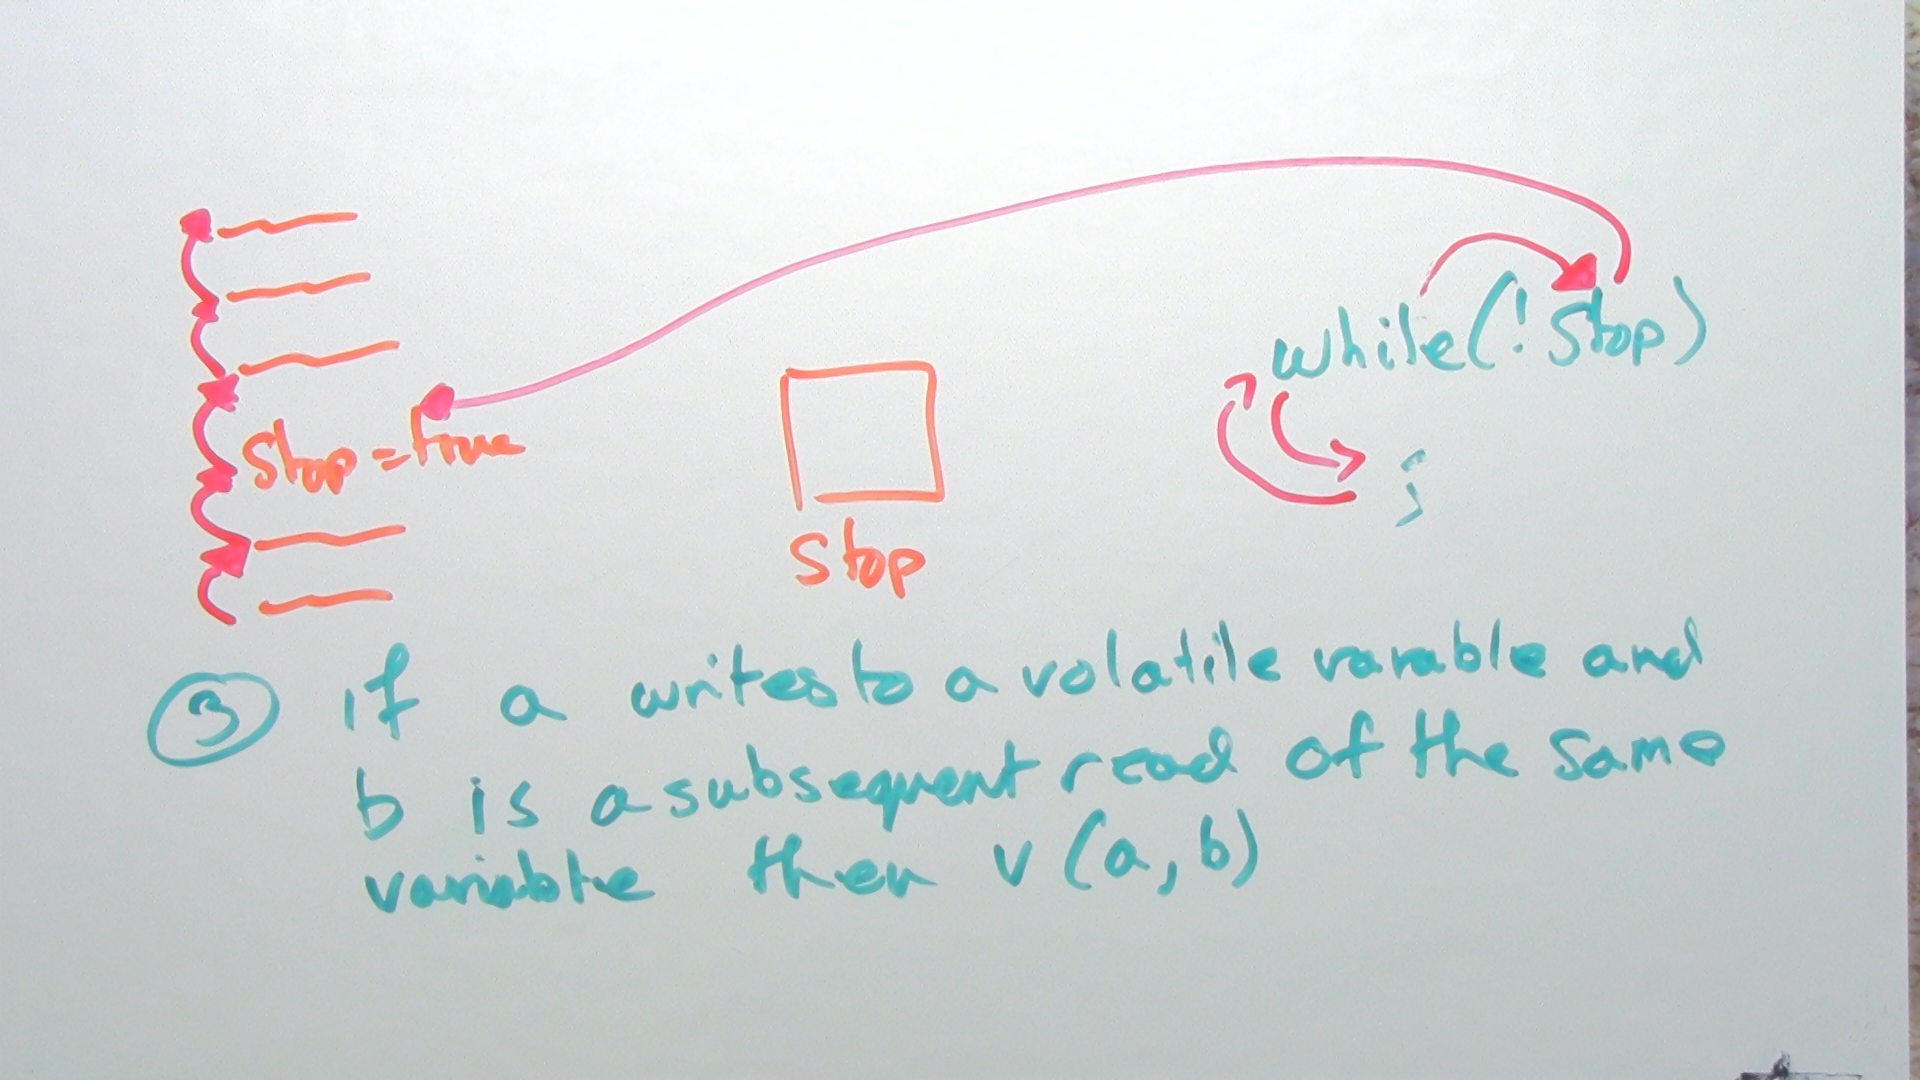 while(!Stop)
;
Stop=true
Stop
③ if a writes to a volatile variable and
b is a subsequent read of the same
variable then v(a,b)